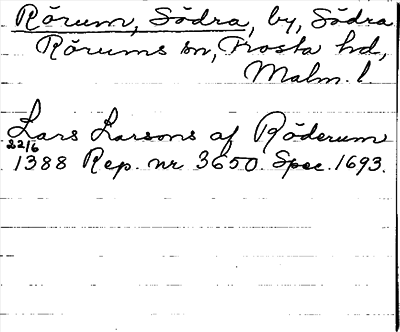 Rörum, Södra, by, Södra
Rörums sn, Frosta hd,
Malm. l.
Lars Larsons af Röderum
22/6
1388 Rep. nr 3650. Spec. 1693.